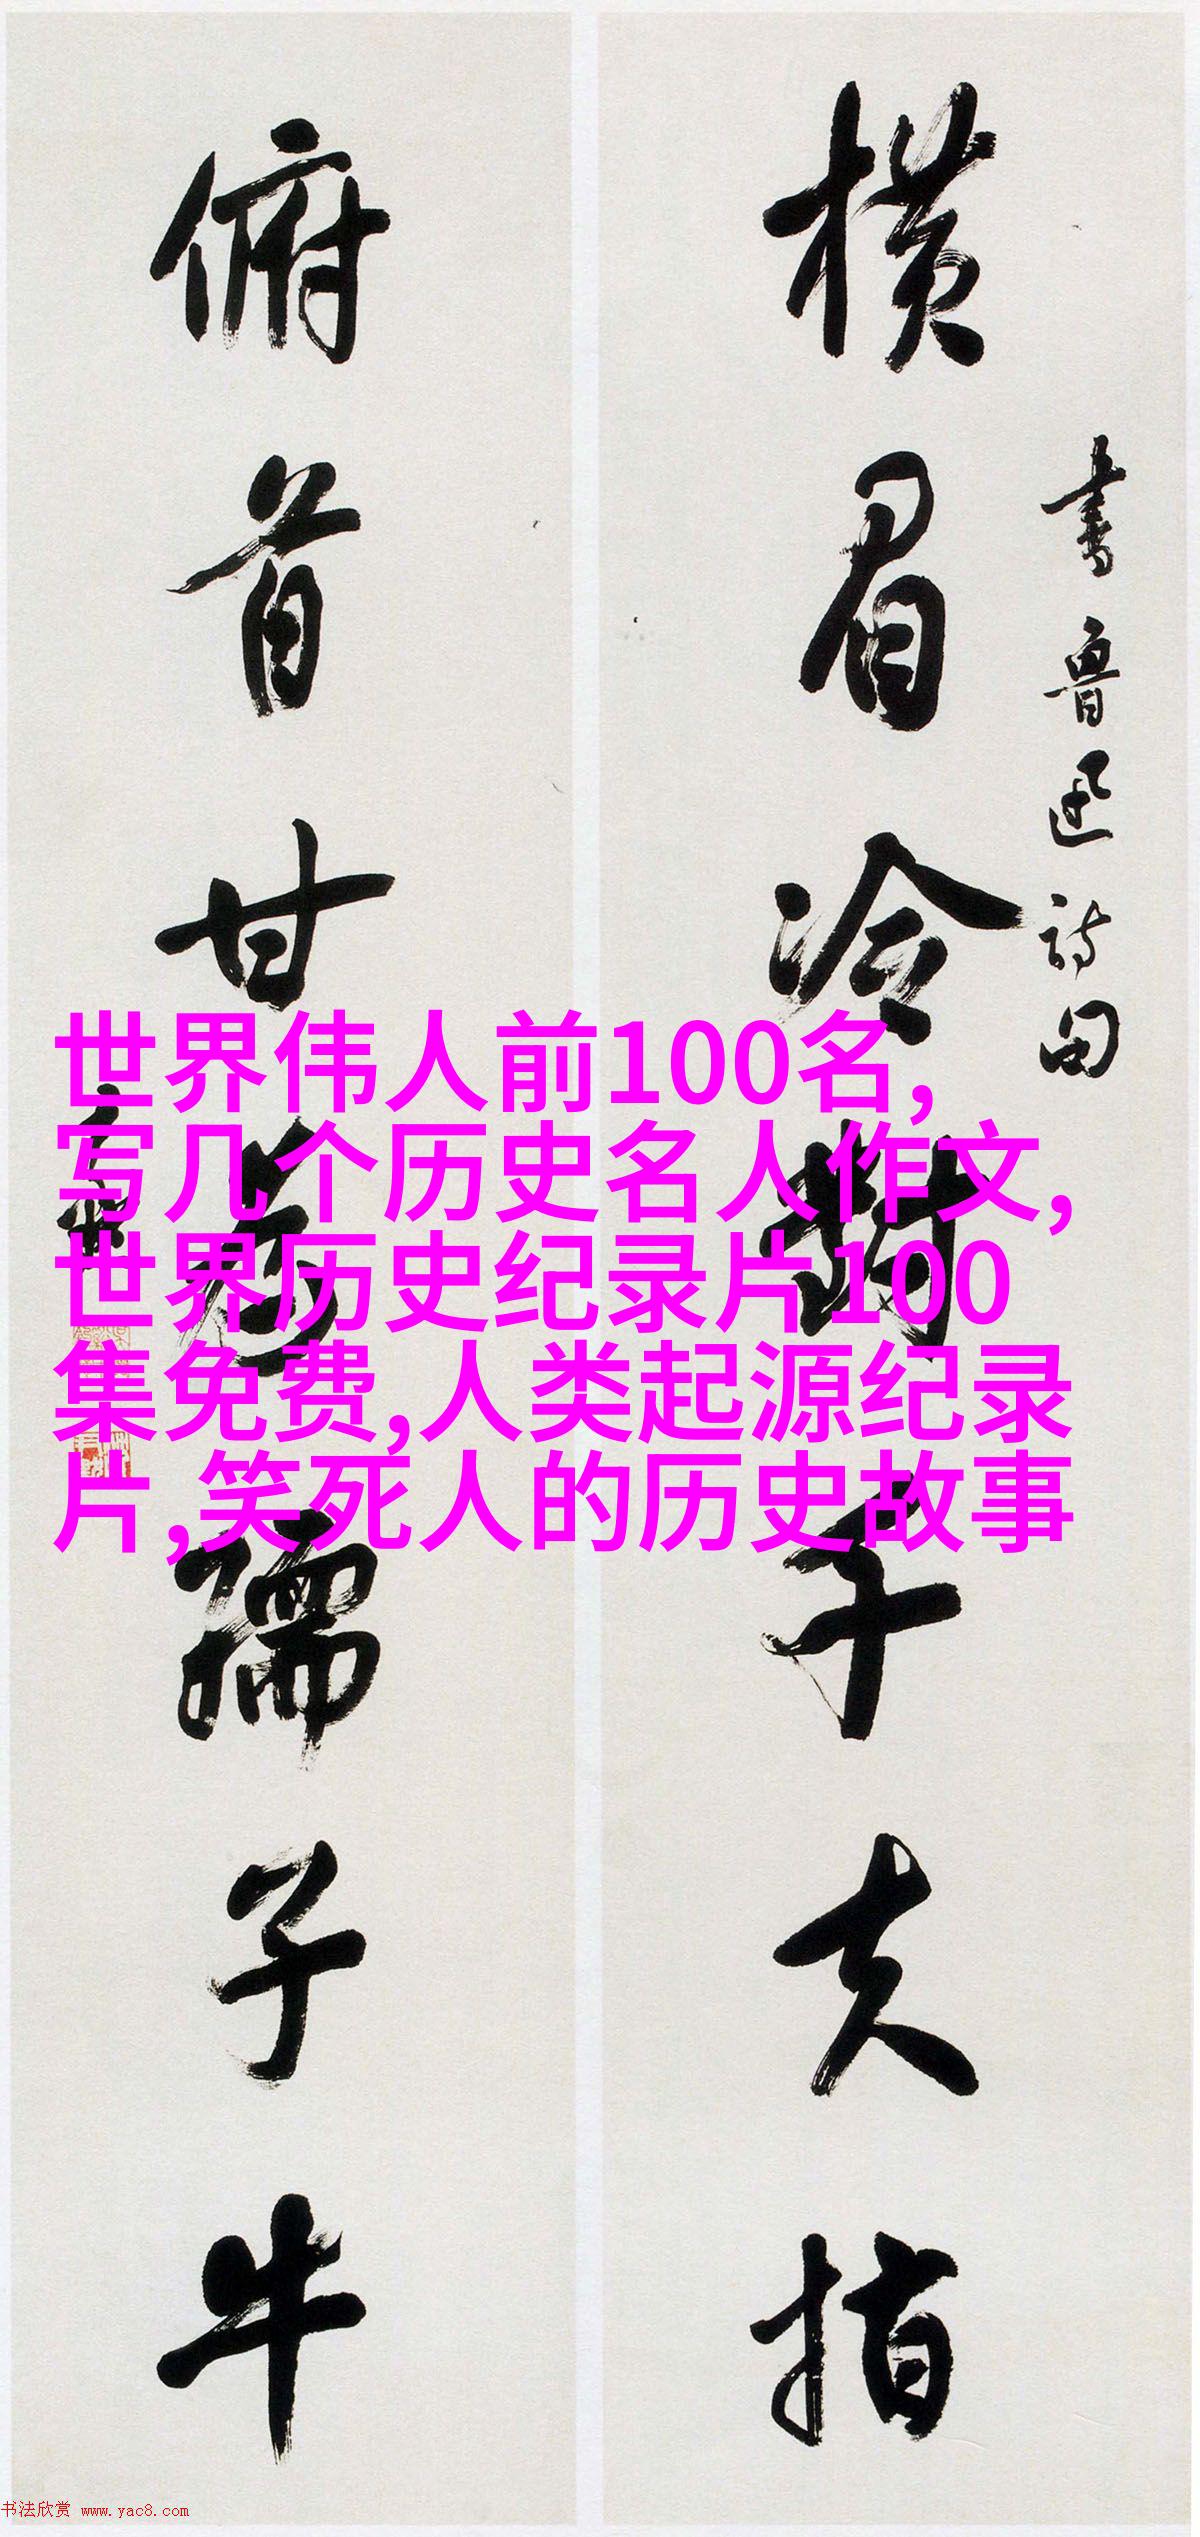 横眉冷对千夫指
书鲁迅诗句
俯首甘为孺子牛
世界伟人前100名,
写几个历史名人作文,
世界历史纪录片100
集免费,人类起源纪录
片,笑死人的历史故事
书法欣赏 www.yac8.com